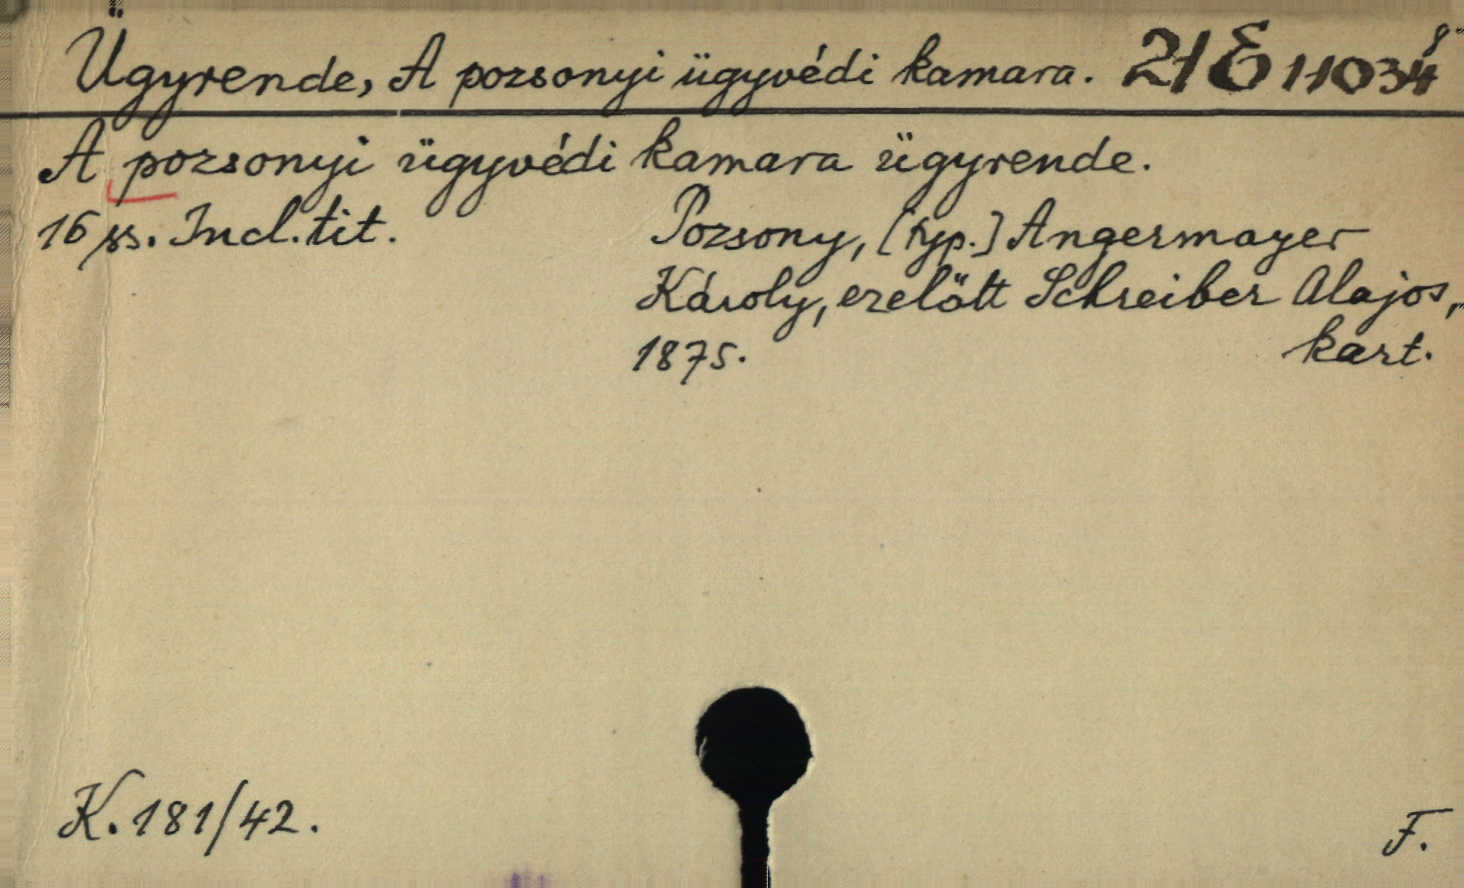 Ügyrende, A pozsonyi ügyvédi kamara. 21 E 11034 8°
A pozsonyi ügyvédi kamara ügyrende.
16 ss. Incl. tit. Pozsony, [typ.] Angermayer
Károly, ezelőtt Schreiber Alajos,
1875. kart.
K. 181/42. F.